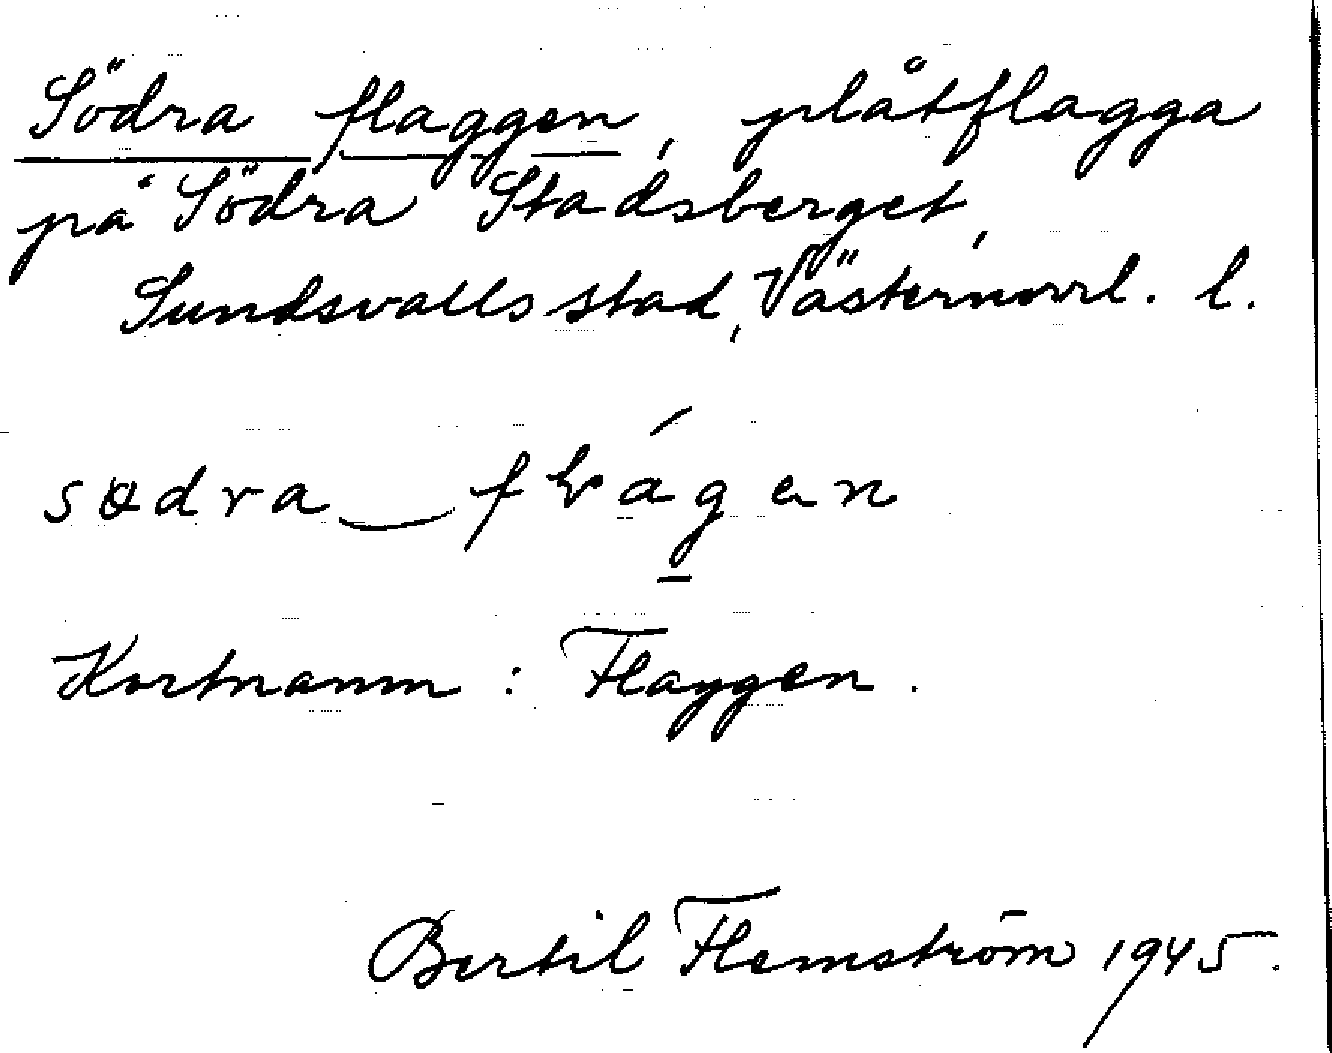 Södra flaggen, plåtflagga
på Södra Stadsberget,
Sundsvalls stad, Västernorrl. l.
södra flágen
Kortnamn : Flaggen.
Bertil Flemström 1945.